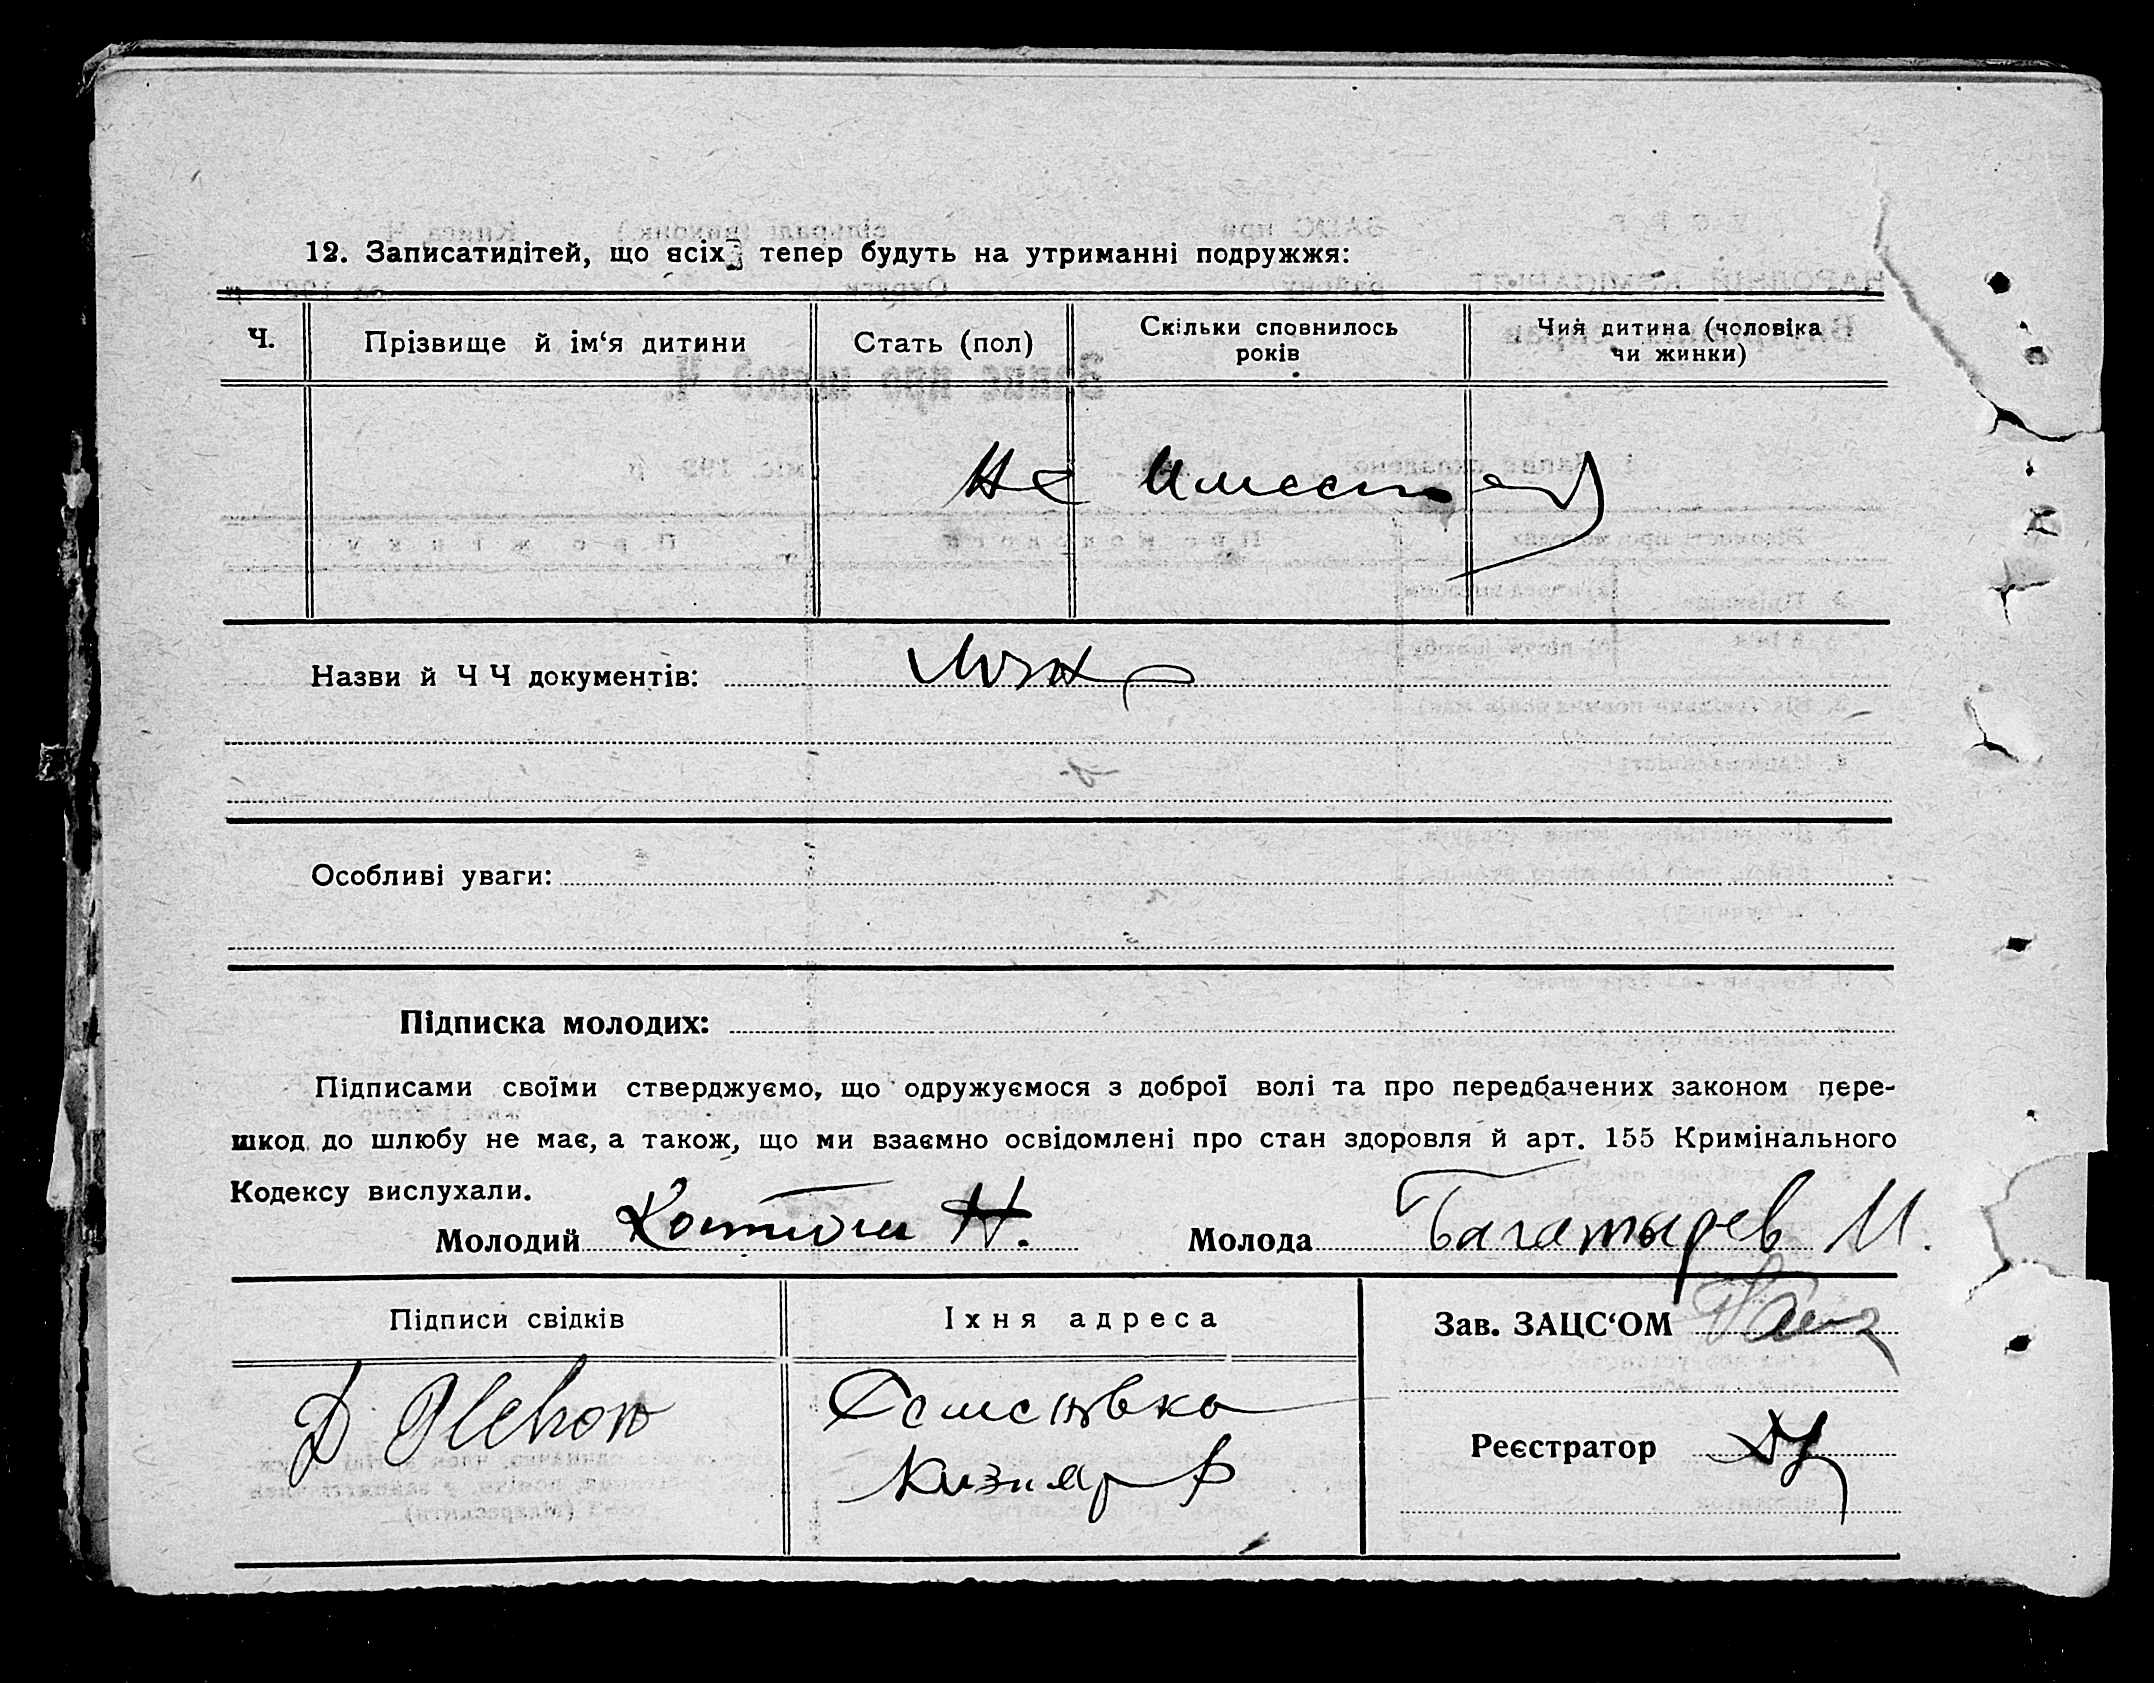 12. Записатидітей, що всіх тепер будуть на утриманні подружжя:
Ч.
Прізвище й ім‘я дитини
Стать (пол)
Скільки сповнилось
років
Чия дитина (чоловіка
чи жинки)
Не Имеет
Назви й Ч Ч документів:
Особливі уваги:
Підписка молодих:
Підписами своїми стверджуємо, що одружуємося з доброї волі та про передбачених законом пере-
шкод до шлюбу не має, а також, що ми взаємно освідомлені про стан здоровля й арт. 155 Кримінального
Кодексу вислухали.
Молодий Н. Молода Багатырев М.
Підписи свідків
Іхня адреса
Зав. ЗАЦС‘ОМ
Реєстратор